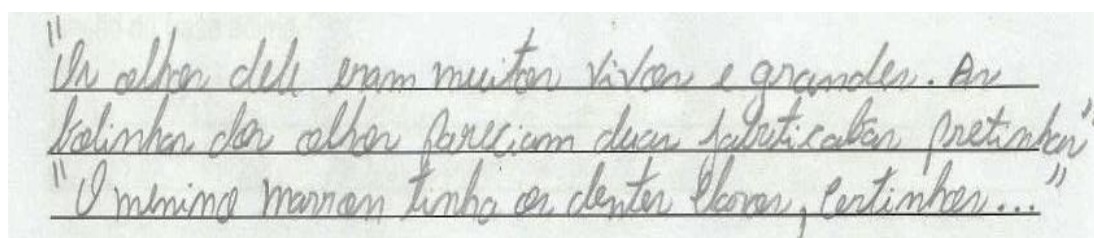 "Os olhos dele eram muitos vivos e grandes. As
bolinhas dos olhos pareciam duas jabuticabas pretinhas"
"O menino marrom tinha os dentes claros, certinhos..."